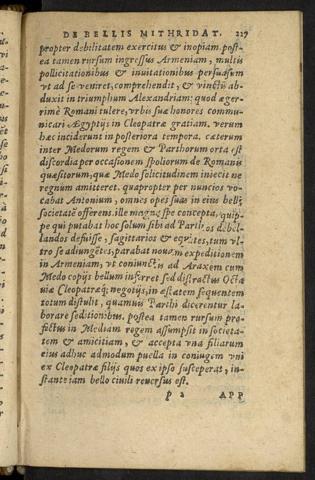 DE BELLIS MITHRIDAT. 227
propter debilitatem exercitus & inopiam. post-
ea tamen rursum ingressus Armeniam, multis
pollicitationibus & inuitationibus persuasum
vt ad se veniret, comprehendit, & vinctū ab-
duxit in triumphum Alexandriam: quod æger-
rimè Romani tulere, vrbis suæ honores commu-
nicari Ægyptijs in Cleopatræ gratiam. verum
hæc inciderunt in posteriora tempora. cæterum
inter Medorum regem & Parthorum orta est
discordia per occasionem spoliorum de Romanis
quæsitorum, quæ Medo solicitudinem iniecit ne
regnum amitteret. quapropter per nuncios vo-
cabat Antonium, omnes opes suas in eius belli
societatē offerens. ille magna spe concepta, quip-
pe qui putabat hoc solum sibi ad Parthos debel-
landos defuisse, sagittarios & equites, tum vl-
tro se adiungētes, parabat nouam expeditionem
in Armeniam, vt coniunctis ad Araxem cum
Medo copijs bellum inferret. sed distractus Octa
uiæ Cleopatræq; negotijs, in æstatem sequentem
totum distulit, quamuis Parthi dicerentur la-
borare seditionibus. postea tamen rursum pro-
fectus in Mediam regem assumpsit in societa-
tem & amicitiam, & accepta vna filiarum
eius adhuc admodum puella in coniugem vni
ex Cleopatræ filijs quos ex ipso susceperat, in-
stante iam bello ciuili reuersus est.
p 2 APP